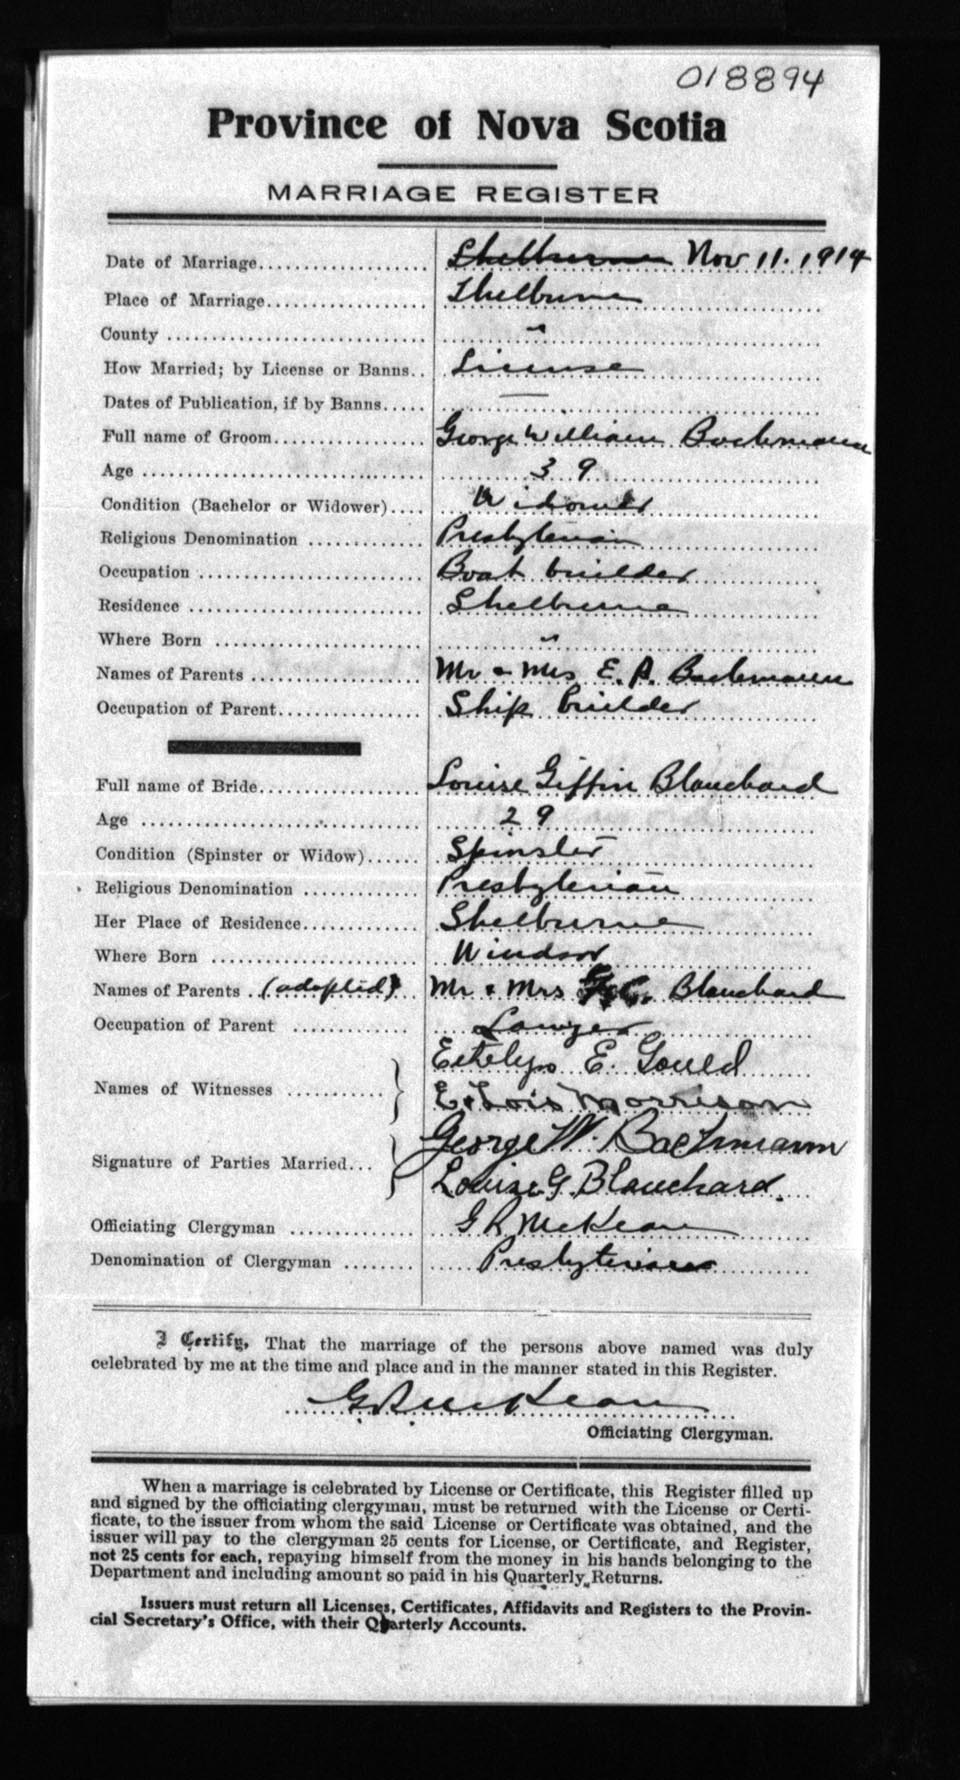 018894
Province of Nova Scotia
MARRIAGE REGISTER
Date of Marriage.................... Shelburne Nov 11. 1914
Place of Marriage................... Shelburne
County .............................. "
How Married; by License or Banns.. License
Dates of Publication, if by Banns..... —
Full name of Groom.................. George William Bachmann
Age .................................. 39
Condition (Bachelor or Widower).... Widower
Religious Denomination ............. Presbyterian
Occupation ......................... Boat builder
Residence ........................... Shelburne
Where Born ........................ "
Names of Parents .................... Mr & Mrs E. A. Bachmann
Occupation of Parent................. Ship builder
Full name of Bride................... Louise Giffin Blanchard
Age ................................. 29
Condition (Spinster or Widow)...... Spinster
Religious Denomination ............. Presbyterian
Her Place of Residence.............. Shelburne
Where Born ........................ Windsor
Names of Parents . (adopted) Mr & Mrs Blanchard
Occupation of Parent ............. Lawyer
Names of Witnesses ........... E. Gould
E. Lois Morrison
Signature of Parties Married... George W. Bachmann
Louise G. Blanchard.
Officiating Clergyman ............. G R McKean
Denomination of Clergyman ........ Presbyterian
I Certify, That the marriage of the persons above named was duly
celebrated by me at the time and place and in the manner stated in this Register.
G R McKean
Officiating Clergyman.
When a marriage is celebrated by License or Certificate, this Register filled up
and signed by the officiating clergyman, must be returned with the License or Certi-
ficate, to the issuer from whom the said License or Certificate was obtained, and the
issuer will pay to the clergyman 25 cents for License, or Certificate, and Register,
not 25 cents for each, repaying himself from the money in his hands belonging to the
Department and including amount so paid in his Quarterly Returns.
Issuers must return all Licenses, Certificates, Affidavits and Registers to the Provin-
cial Secretary's Office, with their Quarterly Accounts.